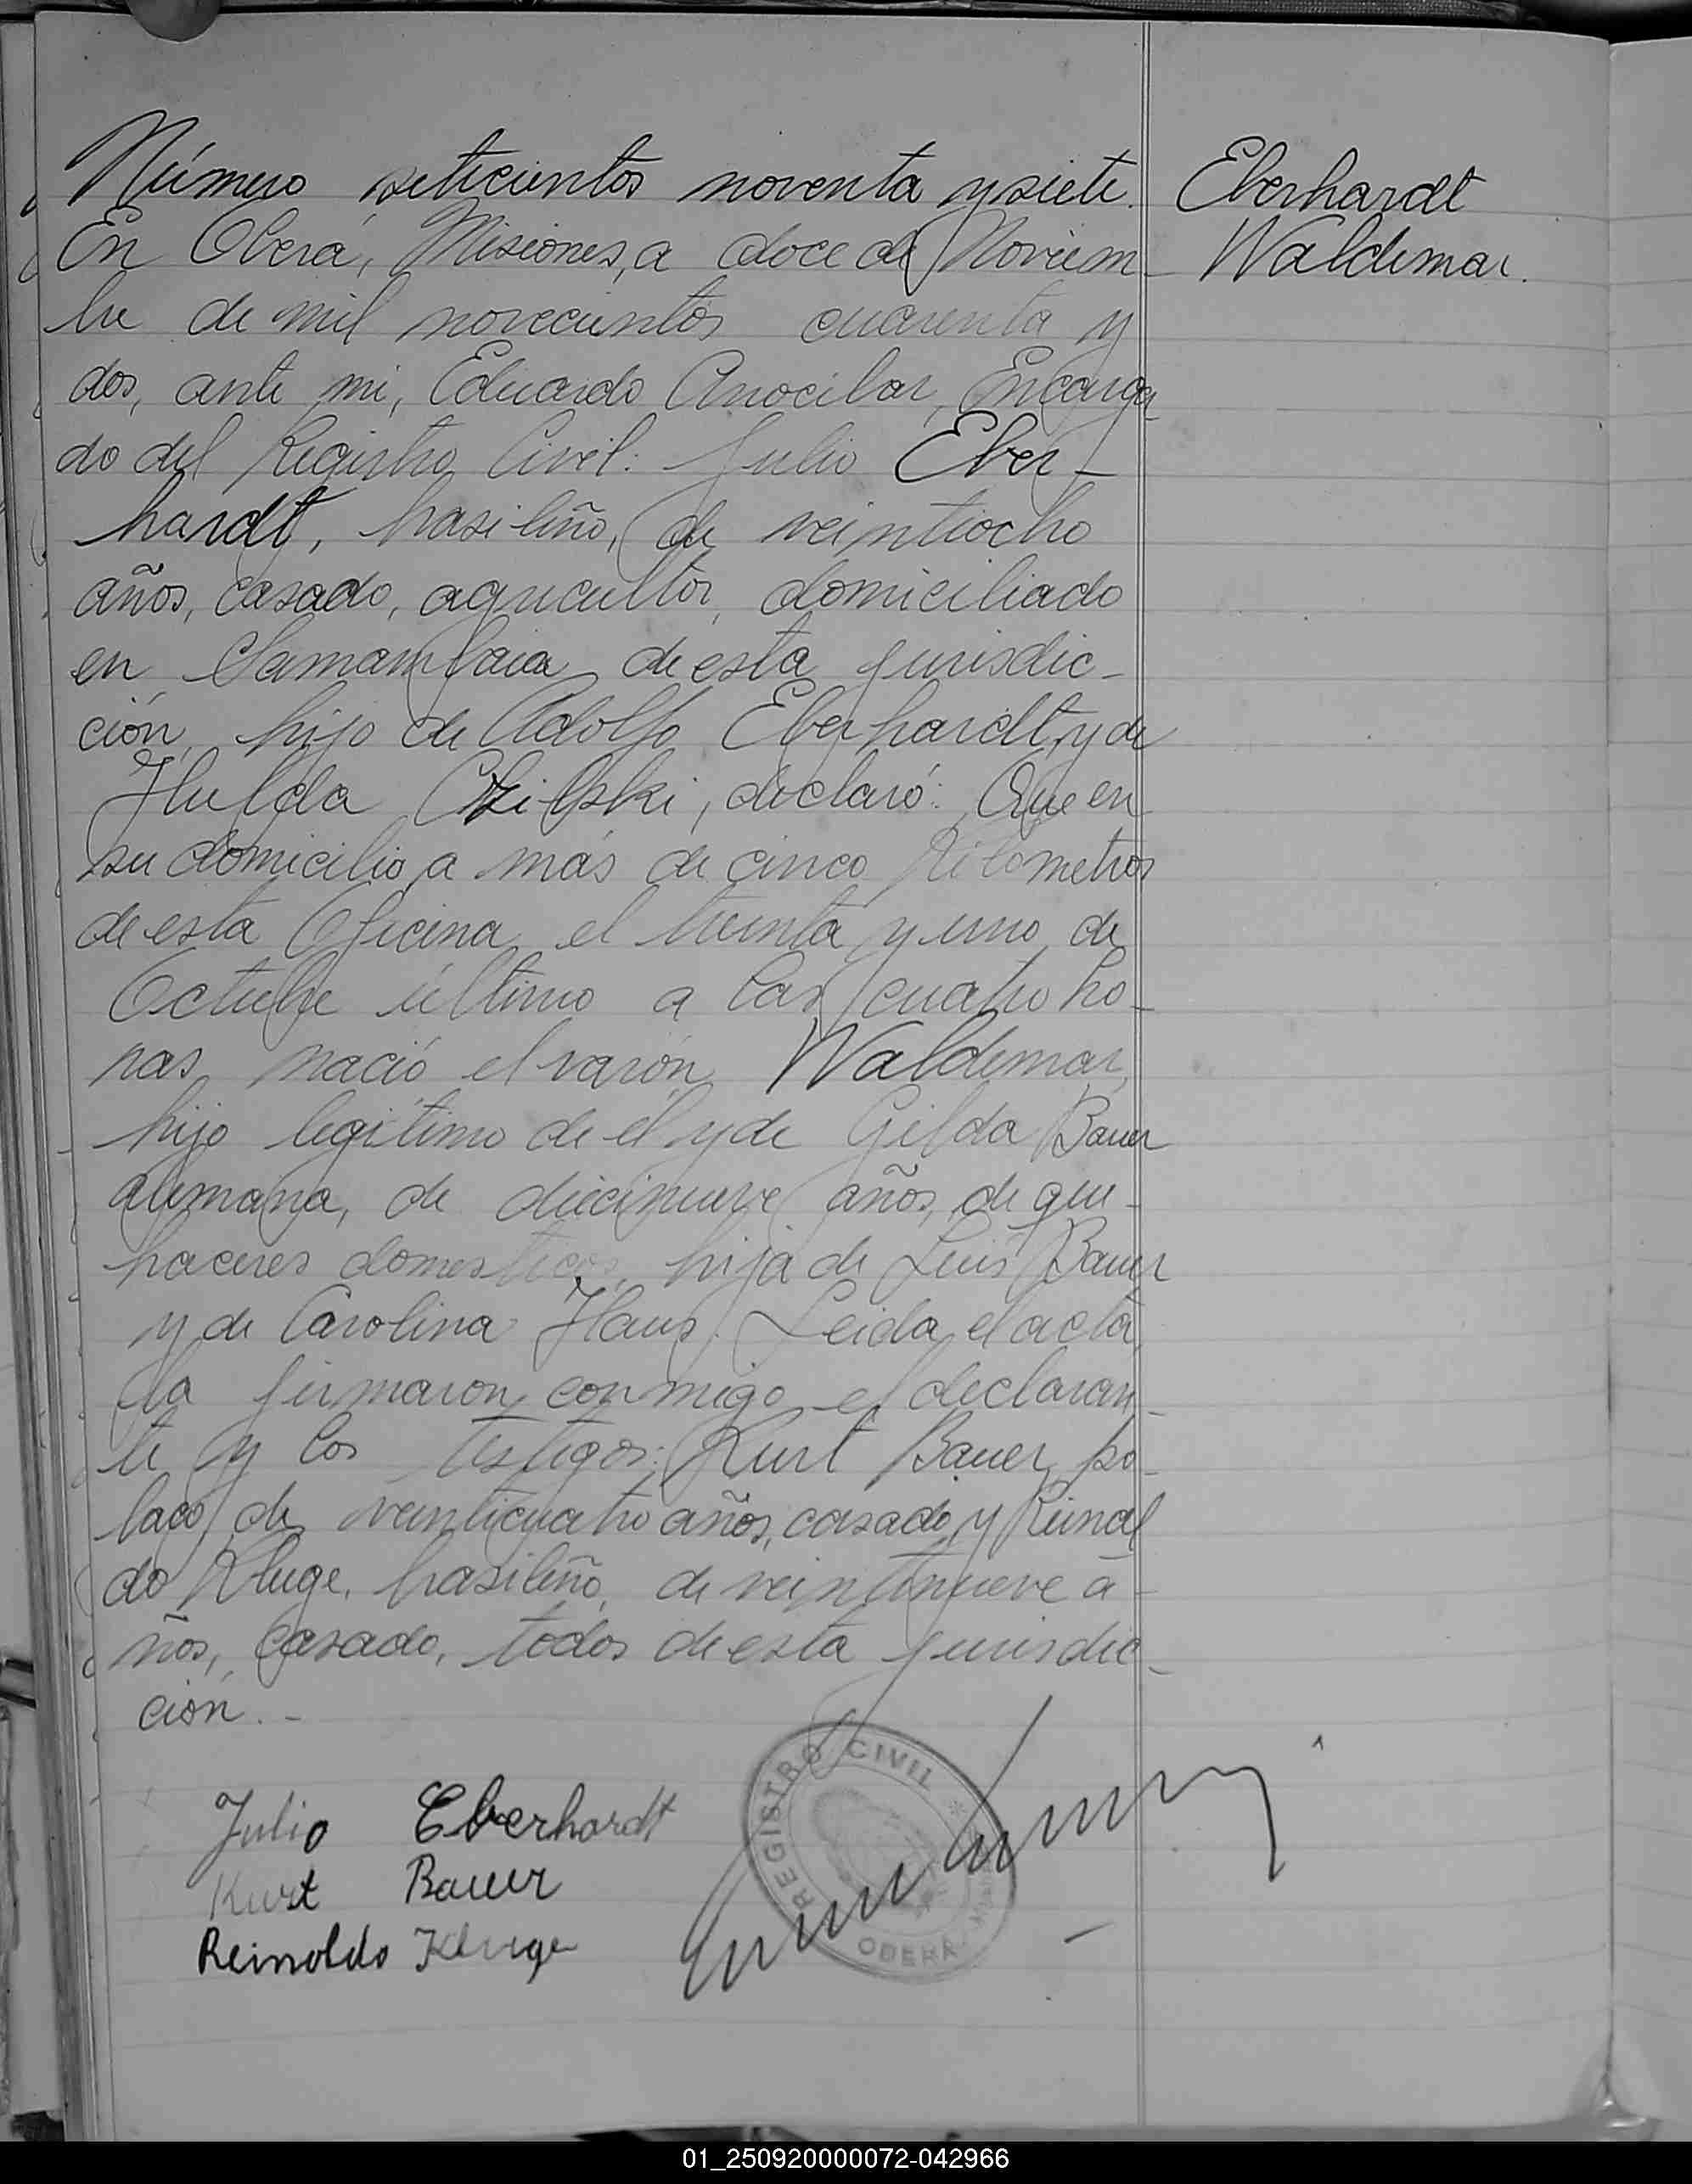 Número setecientos noventa y siete.
Eberhardt
Waldemar.
En Oberá, Misiones, a doce de Noviem-
bre de mil novecientos cuarenta y
dos, ante mi, Eduardo Anocibar, Encarga
do del Registro Civil: Julio Eber-
hardt, brasileño, de veintiocho
años, casado, agricultor, domiciliado
en Samambaia de esta jurisdic-
ción, hijo de Adolfo Eberhardt, y de
Hulda Czilpski, declaró: Que en
su domicilio a más de cinco kilometros
de esta Oficina, el treinta y uno de
Octubre último a las cuatro ho-
ras nació el varón Waldemar,
hijo legítimo de él y de Gilda Bauer
alemana, de diecinueve años, de que-
haceres domesticos, hija de Luis Bauer
y de Carolina Haus. Leida el acta,
la firmaron conmigo el declaran-
te y los testigos: Kurt Bauer, po-
laco, de veinticuatro años, casado, y Reinal
do Kluge, brasileño, de veintinueve a-
ños, casado, todos de esta jurisdic-
ción.-
Julio Eberhardt
Kurt Bauer
Reinoldo Kluge
REGISTRO CIVIL
OBERA
01_250920000072-042966